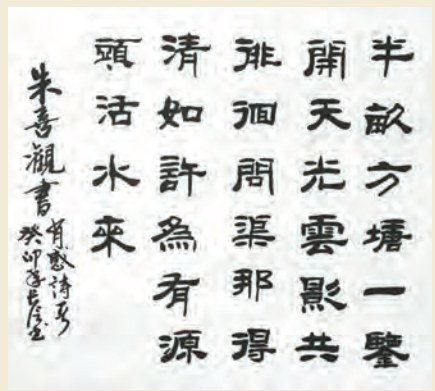 半畝方塘一鑒
開天光雲影共
徘徊問渠那得
清如許為有源
頭活水來
朱喜觀書
有感詩
癸卯年